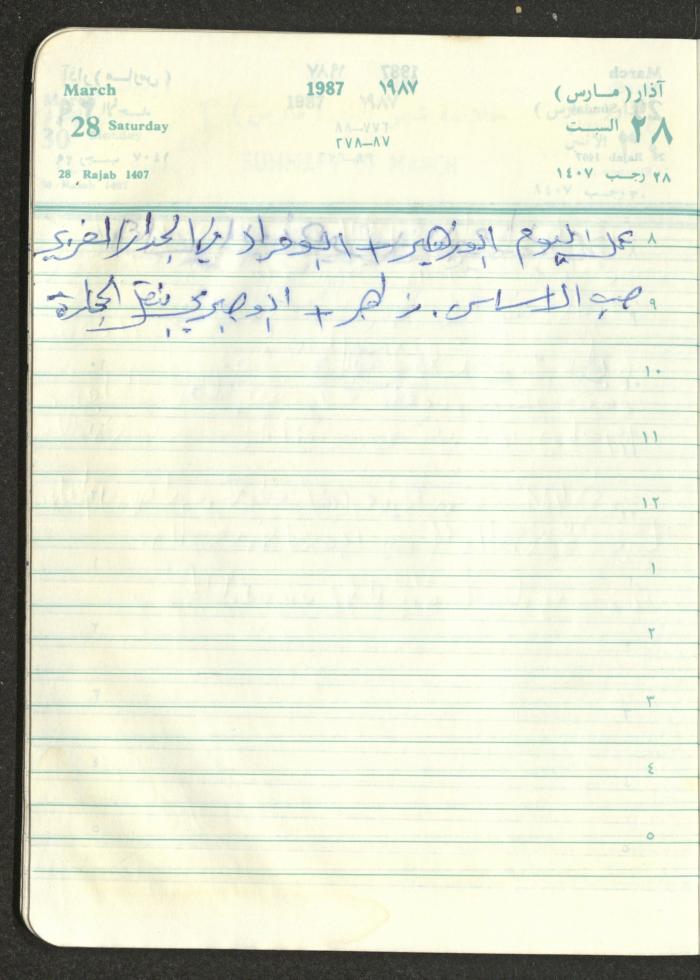 March 1987 ١٩٨٧ آذار (مارس)
28 Saturday ٨٧–٢٧٨ السبت ٢٨
28 Rajab 1407 ٢٨ رجب ١٤٠٧
٨ عمل اليوم ابو زهير + ابو مراد في الجدار الغربي
٩ صب الاساس. زهير + ابو صبري بنقل الحجارة
١٠
١١
١٢
١
٢
٣
٤
٥